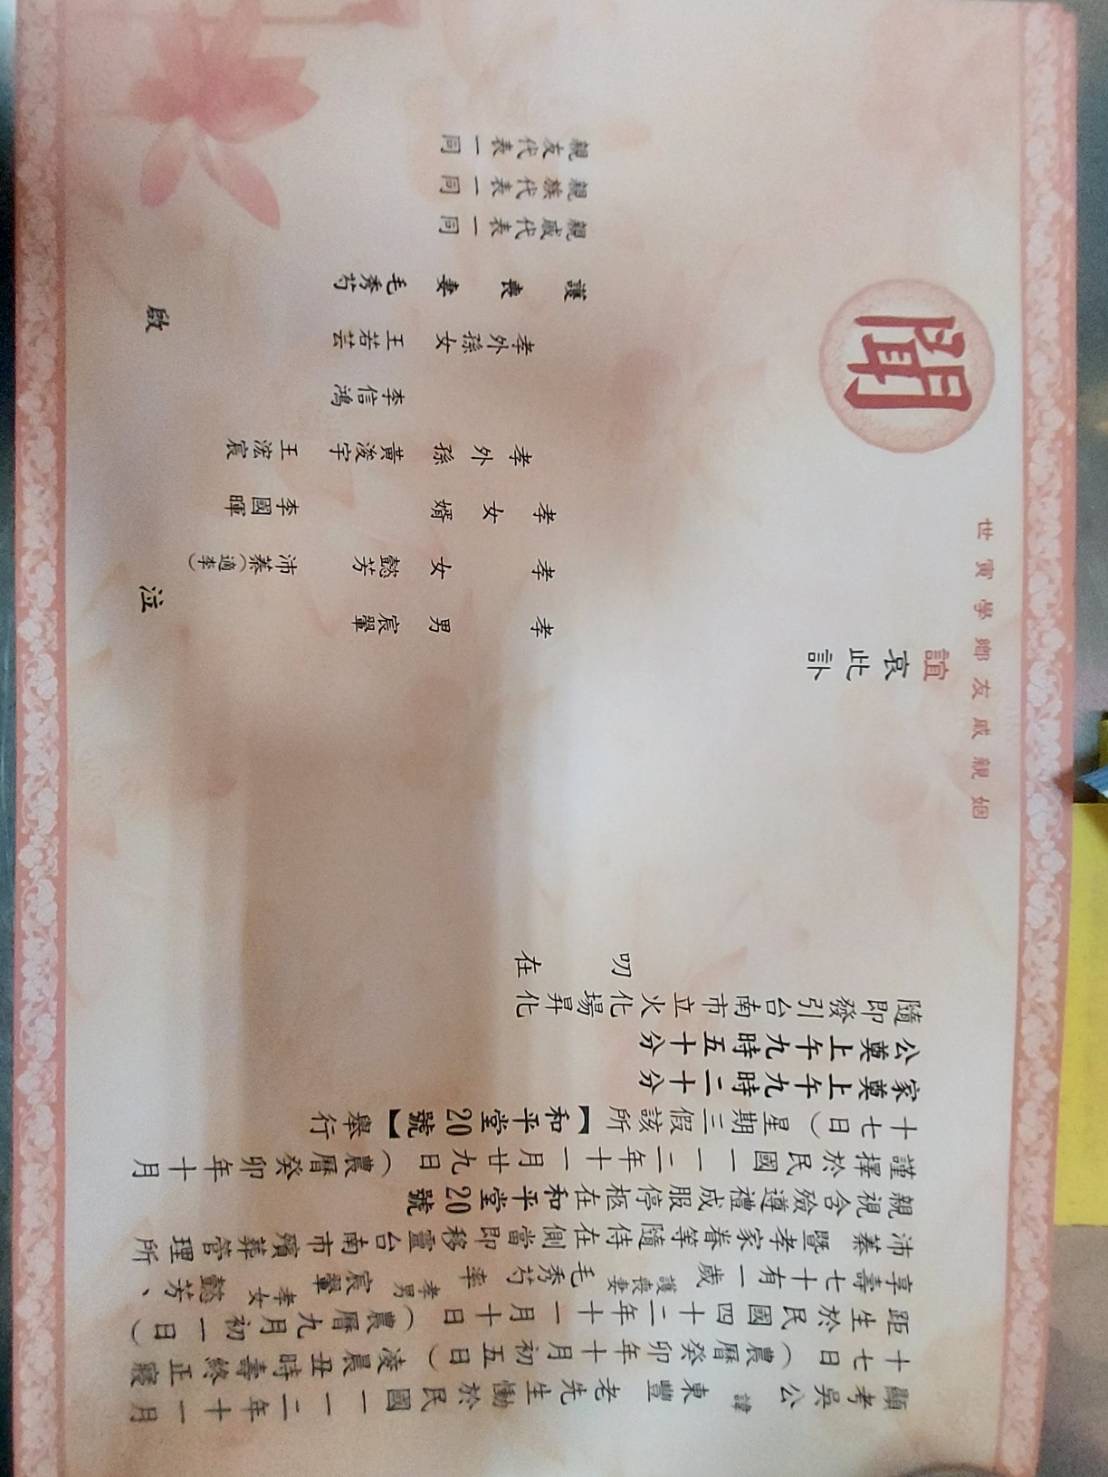 顯考吳公諱東豐老先生慟於民國一一二年十一月
十七日(農曆癸卯年十月初五日)凌晨丑時壽終正寢
距生於民國四十二年十一月十日(農曆九月初一日)
享壽七十有一歲護喪妻毛秀芍率孝男宸翬孝女懿芳、
沛蓁暨孝家眷等隨侍在側當即移靈台南市殯葬管理所
親視含殮遵禮成服停柩在和平堂20號
謹擇於民國一一二年十一月廿九日(農曆癸卯年十月
十七日)星期三假該所【和平堂20號】舉行
家奠上午九時二十分
公奠上午九時五十分
隨即發引台南市立火化場昇化
叨在
世寅學鄉友戚親姻
誼
哀此訃
聞
孝男宸翬
孝女懿芳 沛蓁(適李)
孝女婿李國暉
孝外孫黃浚宇 王浤宸
李信鴻
孝外孫女王若芸
護喪妻毛秀芍
親戚代表一同
親族代表一同
親友代表一同
泣啟